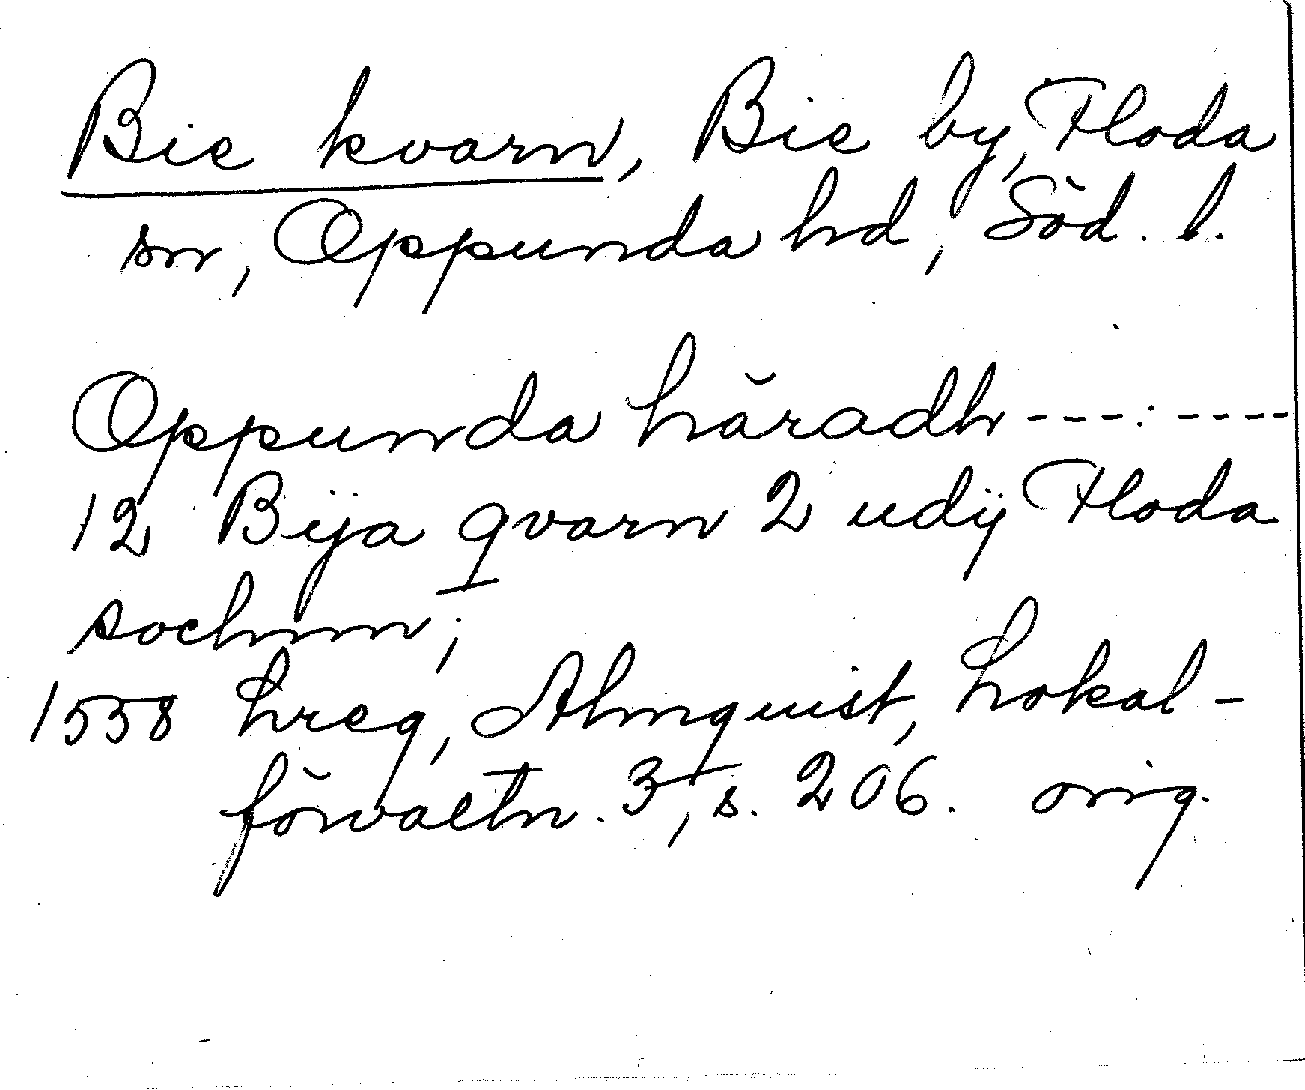 Bie kvarn, Bie by, Floda
sn, Oppunda hd, Söd. l.
Oppunda häradh ---:----
12 Bija qvarn 2 udij Floda
sochnn;
1558 Lreg, Almquist, Lokal-
förvaltn. 3, s. 206. orig.